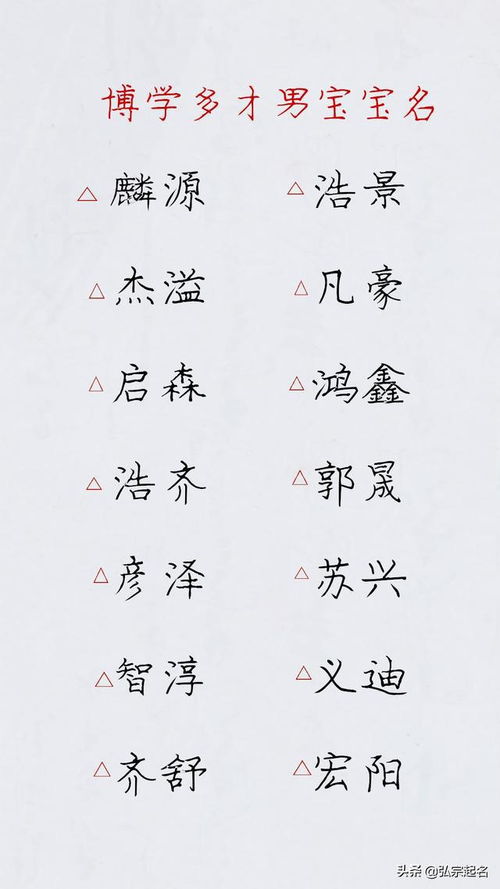 博学多才男宝宝名
△麟源 △浩景
△杰溢 △凡豪
△启森 △鸿鑫
△浩齐 △郭晟
△彦泽 △苏兴
△智淳 △义迪
△齐舒 △宏阳
头条 @弘宗起名